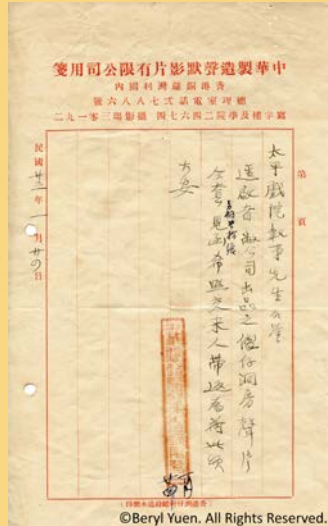 中華製造聲默影片有限公司用箋
香港銅鑼灣利園內
總理室電話弍七八八六號
寫字樓及學院二四六七四 攝影場三零一九二
太平戲院執事先生台鑒
逕啟者敝公司出品之傻仔洞房聲片
全套
見函希照交来人帶返為荷此頌
大安
民國廿三年一月廿四日
第 頁
©Beryl Yuen. All Rights Reserved.